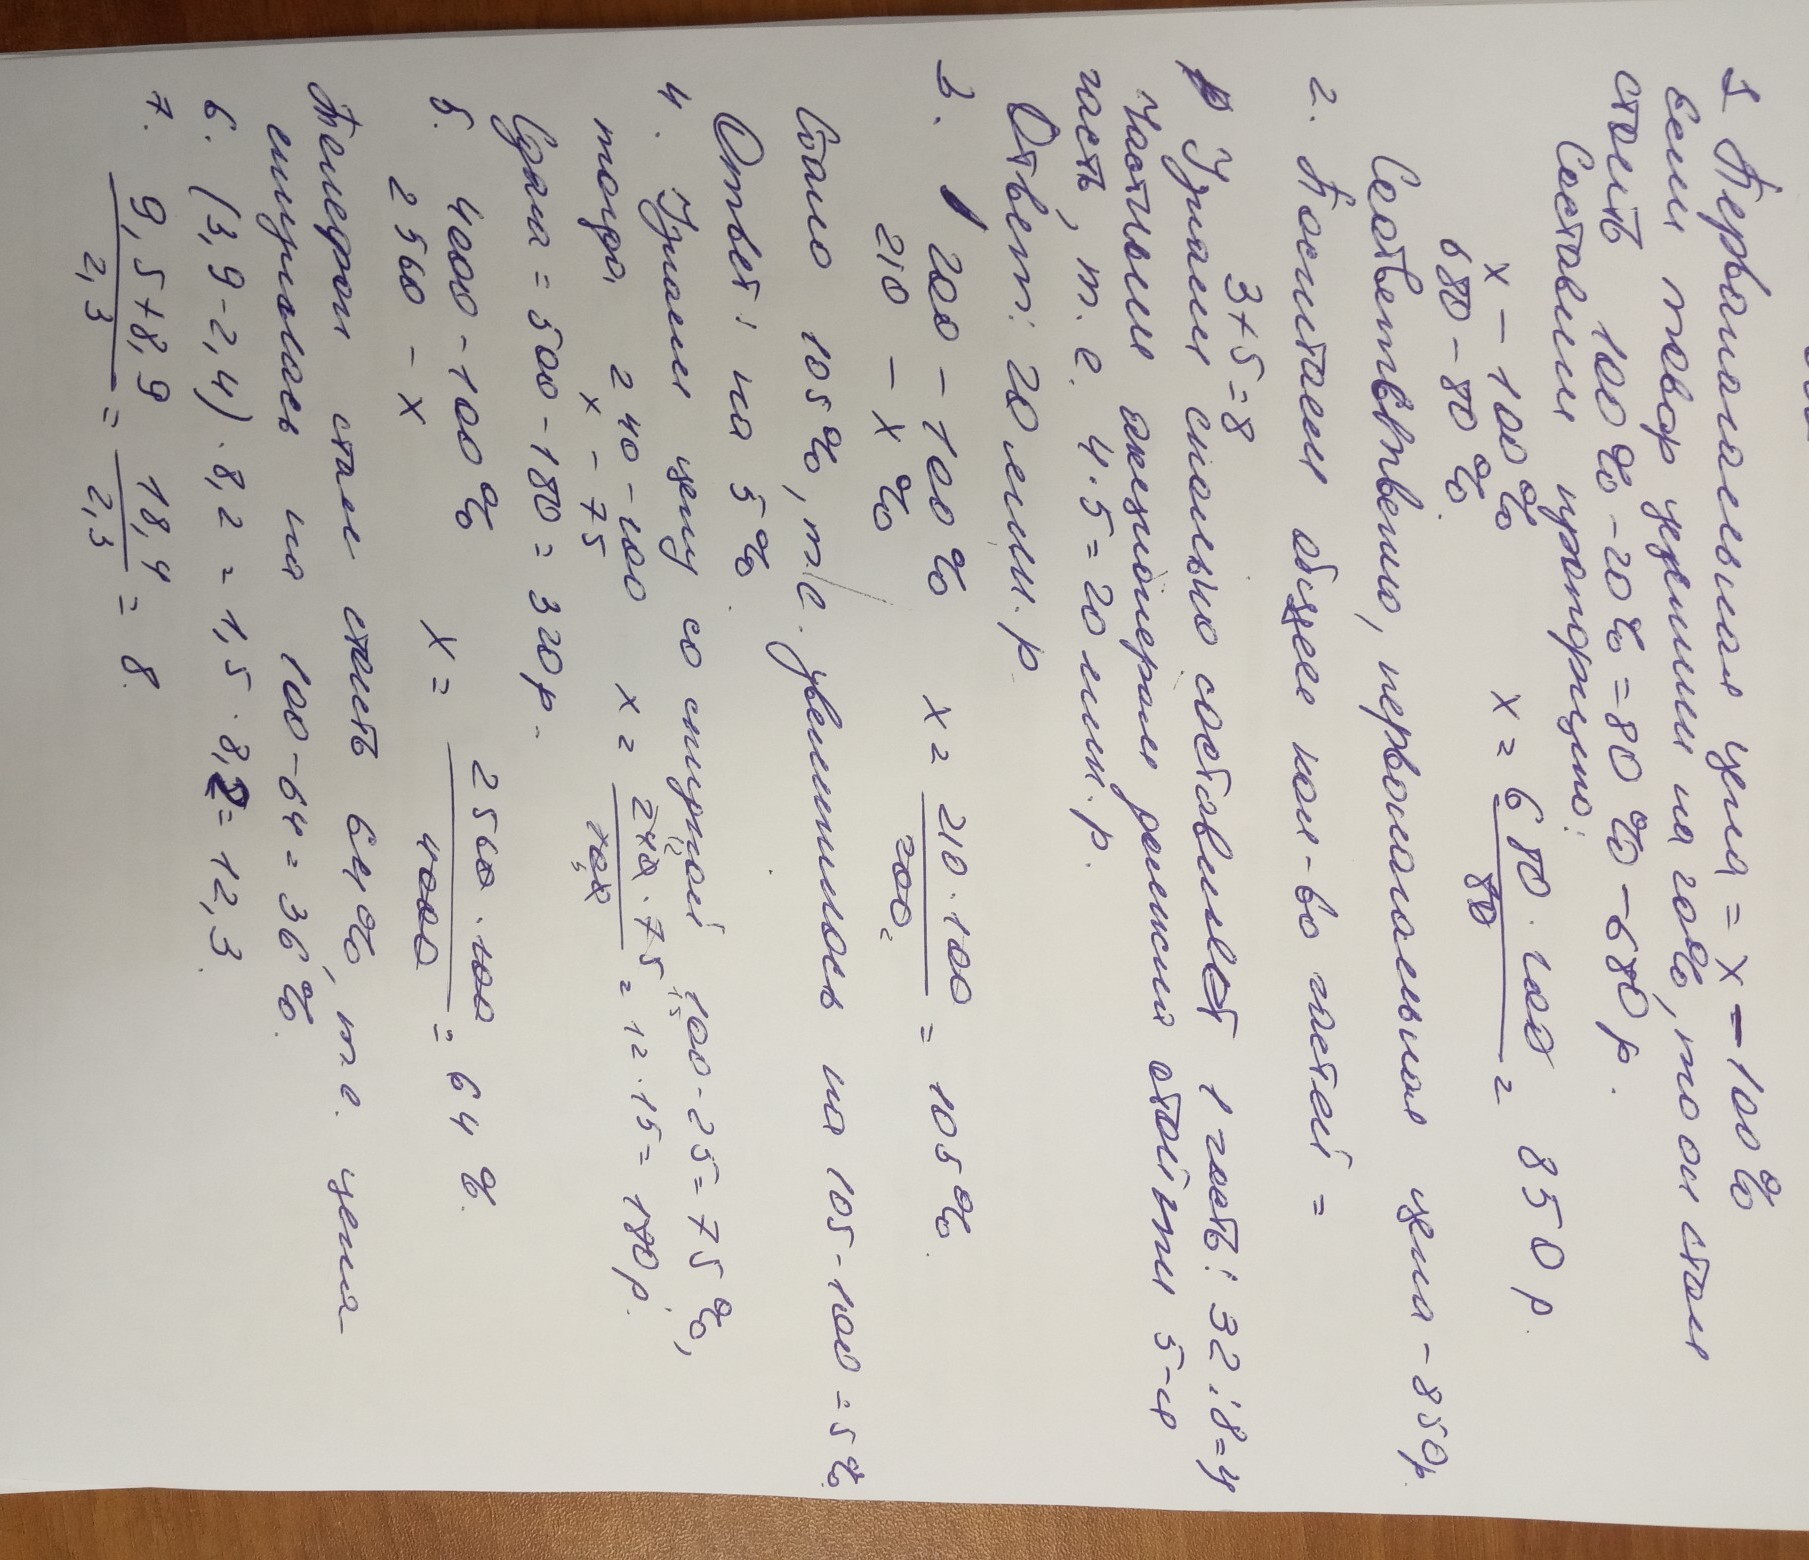 1. Первоначальная цена = х – 100%
Если товар уценили на 20%, то он стал
стоить 100% - 20% = 80% - 680 р.
Составим пропорцию:
х – 100%
680 – 80%
х = 680·100 / 80 = 850 р.
Соответственно, первоначальная цена – 850р.
2. Посчитаем общее кол-во частей =
3+5=8
Узнаем сколько составляет 1 часть: 32:8=4
Частным акционерам должна отойти 5-ая
часть, т.е. 4·5=20 млн.р.
Ответ: 20 млн.р.
3. 200 – 100%
210 – х %
х = 210·100 / 200 = 105%.
Стало 105%, т.е. увеличилось на 105-100=5%.
Ответ: на 5%.
4. Узнаем цену со скидкой 100-25=75%,
тогда 240-100
х - 75
х = 240·75 / 100 = 12·15 = 180р.
Сдача = 500-180 = 320р.
5. 4000 - 100%
2560 - х
х = 2560·100 / 4000 = 64%.
Телефон стал стоить 64%, т.е. цена
снизилась на 100-64=36%.
6. (3,9-2,4)·8,2 = 1,5·8,2 = 12,3.
7. 9,5+8,9 / 2,3 = 18,4 / 2,3 = 8.